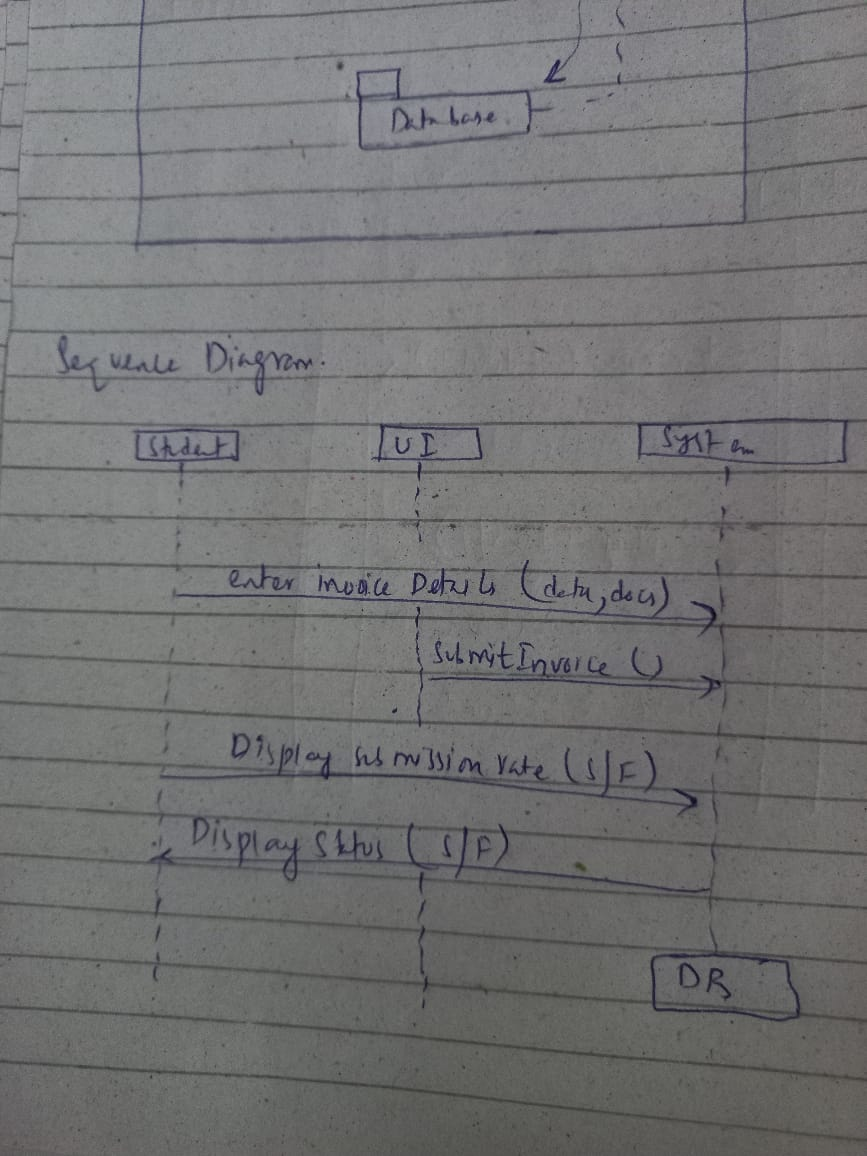 Database.
Sequence Diagram.
Student
UI
System
enter invoice Details (data, docs)
Submit Invoice ()
Display submission rate (S/F)
Display Status (S/F)
DB